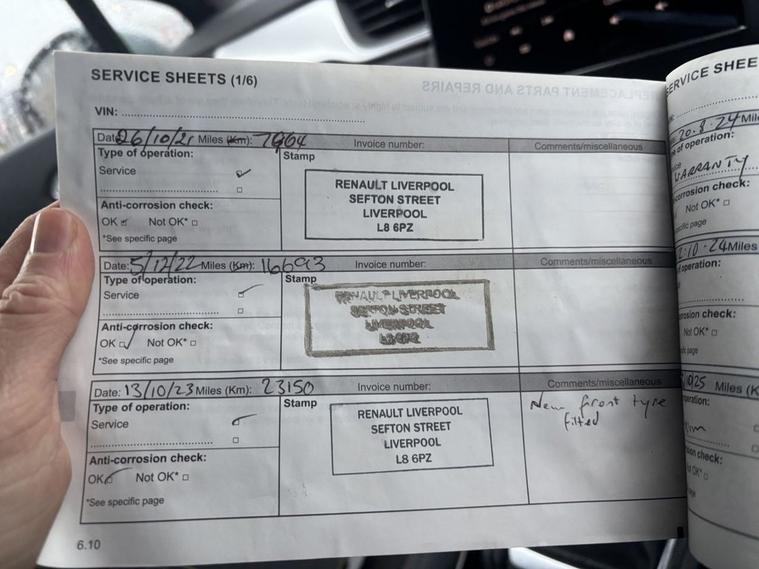 SERVICE SHEETS (1/6)
VIN:
Date: 26/10/21 Miles (Km): 7964 Invoice number: Comments/miscellaneous
Type of operation:
Stamp
Service
RENAULT LIVERPOOL
SEFTON STREET
LIVERPOOL
L8 6PZ
Anti-corrosion check:
OK Not OK*
*See specific page
Date: 5/12/22 Miles (Km): Invoice number: Comments/miscellaneous
Type of operation:
Stamp
Service
RENAULT LIVERPOOL
SEFTON STREET
LIVERPOOL
Anti-corrosion check:
OK Not OK*
*See specific page
Date: 13/10/23 Miles (Km): 23150 Invoice number: Comments/miscellaneous
Type of operation:
Stamp
Service
RENAULT LIVERPOOL
SEFTON STREET
LIVERPOOL
L8 6PZ
New front tyre
fitted
Anti-corrosion check:
OK Not OK*
*See specific page
6.10
SERVICE SHEE
20.8.24 Mil
of operation:
WARRANTY
corrosion check:
Not OK*
specific page
10-24 Miles
operation:
corrosion check:
Not OK*
specific page
Miles (K
operation:
corrosion check:
OK Not OK*
specific page